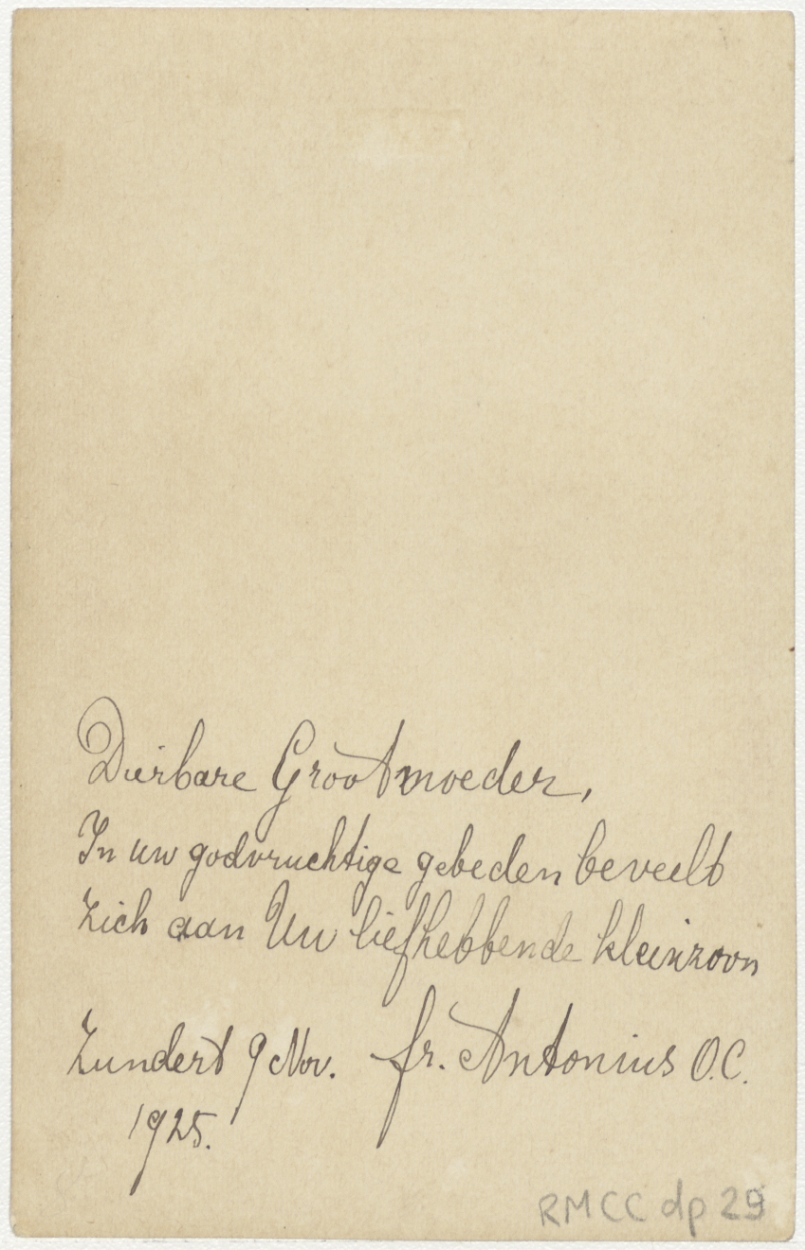 Dierbare Grootmoeder,
In uw godvruchtige gebeden beveelt
zich aan Uw liefhebbende kleinzoon
Zundert 9 Nov. fr. Antonius O.C.
1925.
RMCC dp 29